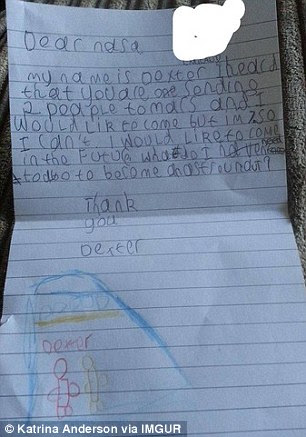 Dear nasa
my name is Dexter I heard
that you are sending
2 people to mars and I
would like to come but im 7 so
I can't. I would like to come
in the future what do I have
to do to become an astronaut?
Thank
you
Dexter
Dexter
© Katrina Anderson via IMGUR